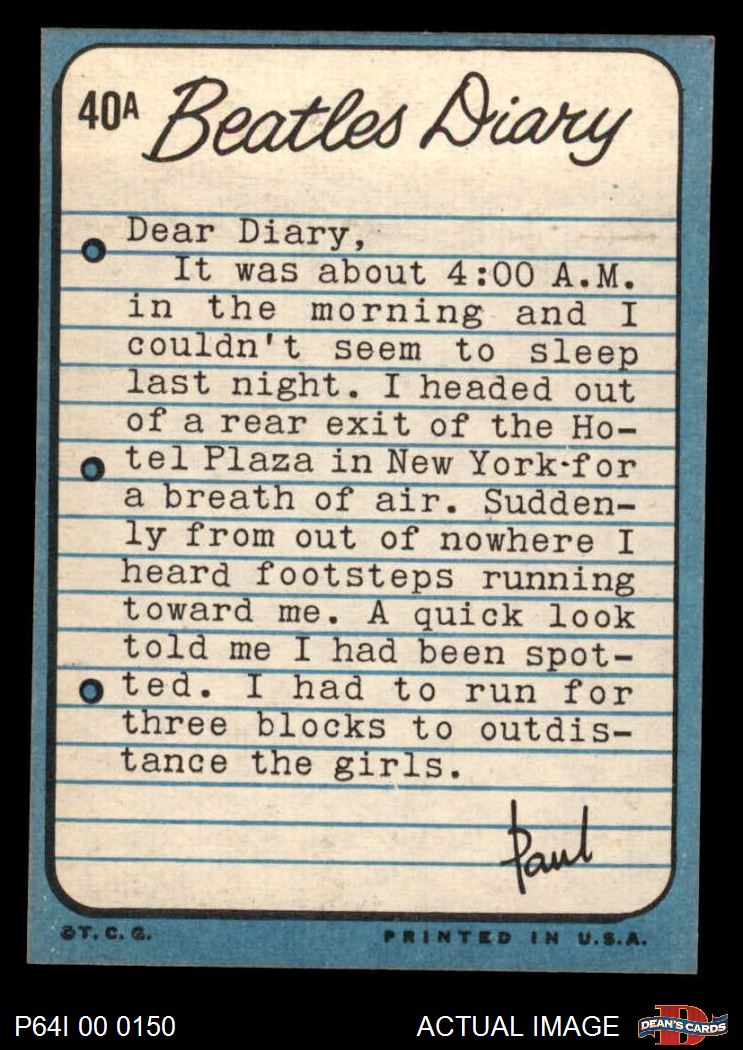 40A Beatles Diary
Dear Diary,
It was about 4:00 A.M.
in the morning and I
couldn't seem to sleep
last night. I headed out
of a rear exit of the Ho-
tel Plaza in New York·for
a breath of air. Sudden-
ly from out of nowhere I
heard footsteps running
toward me. A quick look
told me I had been spot-
ted. I had to run for
three blocks to outdis-
tance the girls.
Paul
©T. C. G.
PRINTED IN U.S.A.
P64I 00 0150
ACTUAL IMAGE
DEAN'S CARDS